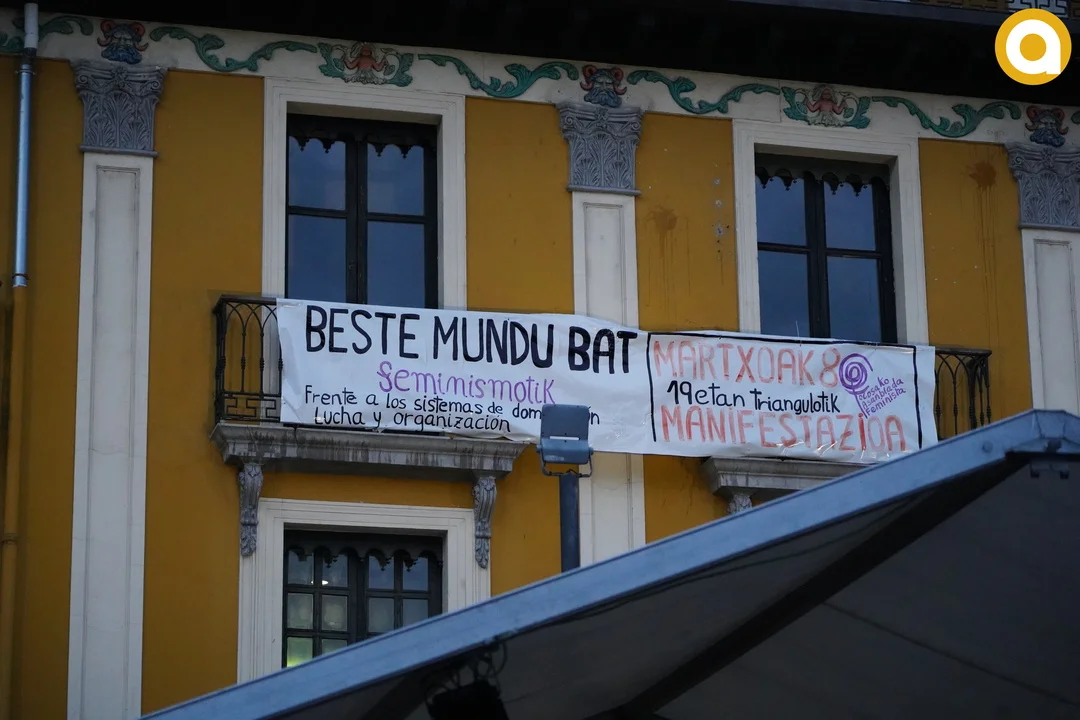 BESTE MUNDU BAT
feminismotik
Frente a los sistemas de
Lucha y organización
MARTXOAK 8
19etan triangulotik
MANIFESTAZIOA
Asanblada
feminista
a